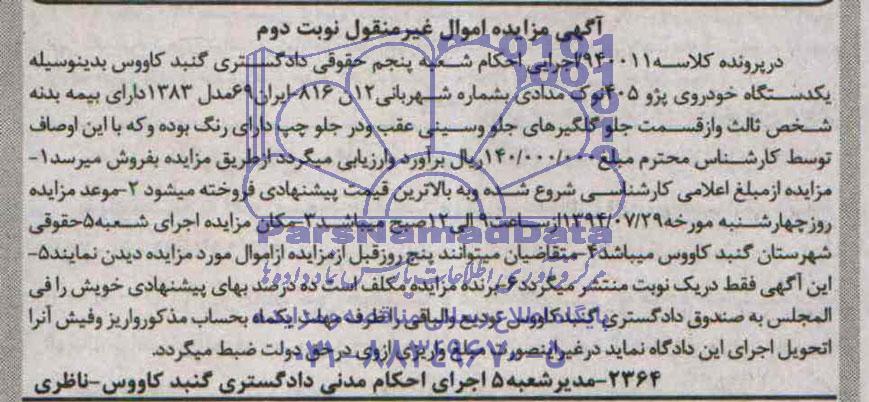 آگهی مزایده اموال غیرمنقول نوبت دوم
درپرونده کلاسه ۹۴۰۰۱۱/اجرایی احکام شعبه پنجم حقوقی دادگستری گنبد کاووس بدینوسیله
یکدستگاه خودروی پژو ۴۰۵نوک مدادی بشماره شهربانی۱۲ن ۸۱۶-ایران۶۹مدل ۱۳۸۳دارای بیمه بدنه
شخص ثالث وازقسمت جلو گلگیرهای جلو وسینی عقب ودر جلو چپ دارای رنگ بوده وکه با این اوصاف
توسط کارشناس محترم مبلغ ۱۴۰/۰۰۰/۰۰۰ریال برآورد وارزیابی میگردد ازطریق مزایده بفروش میرسد۱-
مزایده ازمبلغ اعلامی کارشناسی شروع شده وبه بالاترین قیمت پیشنهادی فروخته میشود ۲-موعد مزایده
روزچهارشنبه مورخه۱۳۹۴/۰۷/۲۹ازساعت۹ الی۱۲صبح میباشد۳-مکان مزایده اجرای شعبه۵حقوقی
شهرستان گنبد کاووس میباشد۴-متقاضیان میتوانند پنج روزقبل ازمزایده ازاموال مورد مزایده دیدن نمایند۵-
این آگهی فقط دریک نوبت منتشر میگردد۶-برنده مزایده مکلف است ده درصد بهای پیشنهادی خویش را فی
المجلس به صندوق دادگستری گنبدکاووس تودیع والباقی را ظرف مهلت یکماه بحساب مذکورواریز وفیش آنرا
اتحویل اجرای این دادگاه نماید درغیراینصورت مبلغ واریزی ازوی درحق دولت ضبط میگردد.
۲۳۶۴-مدیرشعبه۵ اجرای احکام مدنی دادگستری گنبد کاووس-ناظری
ParsNamadData
۰۲۱-۸۸۳۴۹۶۷۰-۵